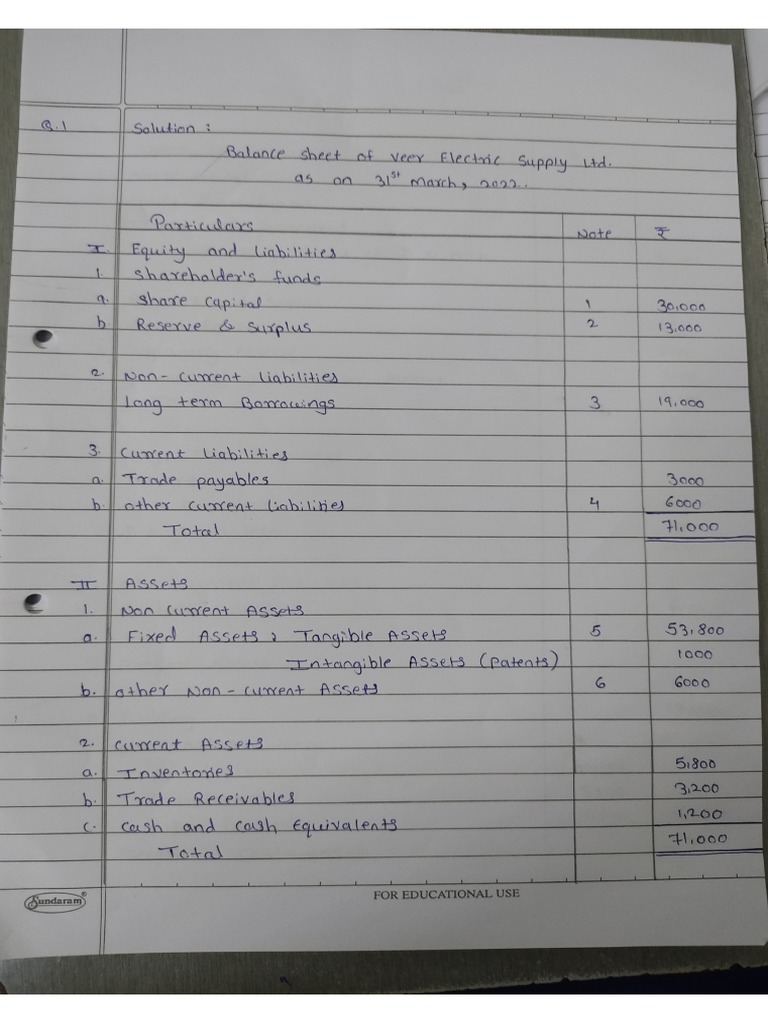 Q.1 Solution :
Balance sheet of Veer Electric Supply Ltd.
as on 31st March, 2022.
Particulars Note ₹
I. Equity and Liabilities
1. Shareholder's funds
a. Share Capital 1 30,000
b Reserve & Surplus 2 13,000
2. Non-Current Liabilities
Long term Borrowings 3 19,000
3. Current Liabilities
a. Trade payables 3000
b. other current liabilities 4 6000
Total 71,000
II Assets
1. Non Current Assets
a. Fixed Assets : Tangible Assets 5 53,800
Intangible Assets (Patents) 1000
b. other Non-current Assets 6 6000
2. Current Assets
a. Inventories 5,800
b. Trade Receivables 3,200
c. Cash and Cash Equivalents 1,200
Total 71,000
Sundaram® FOR EDUCATIONAL USE